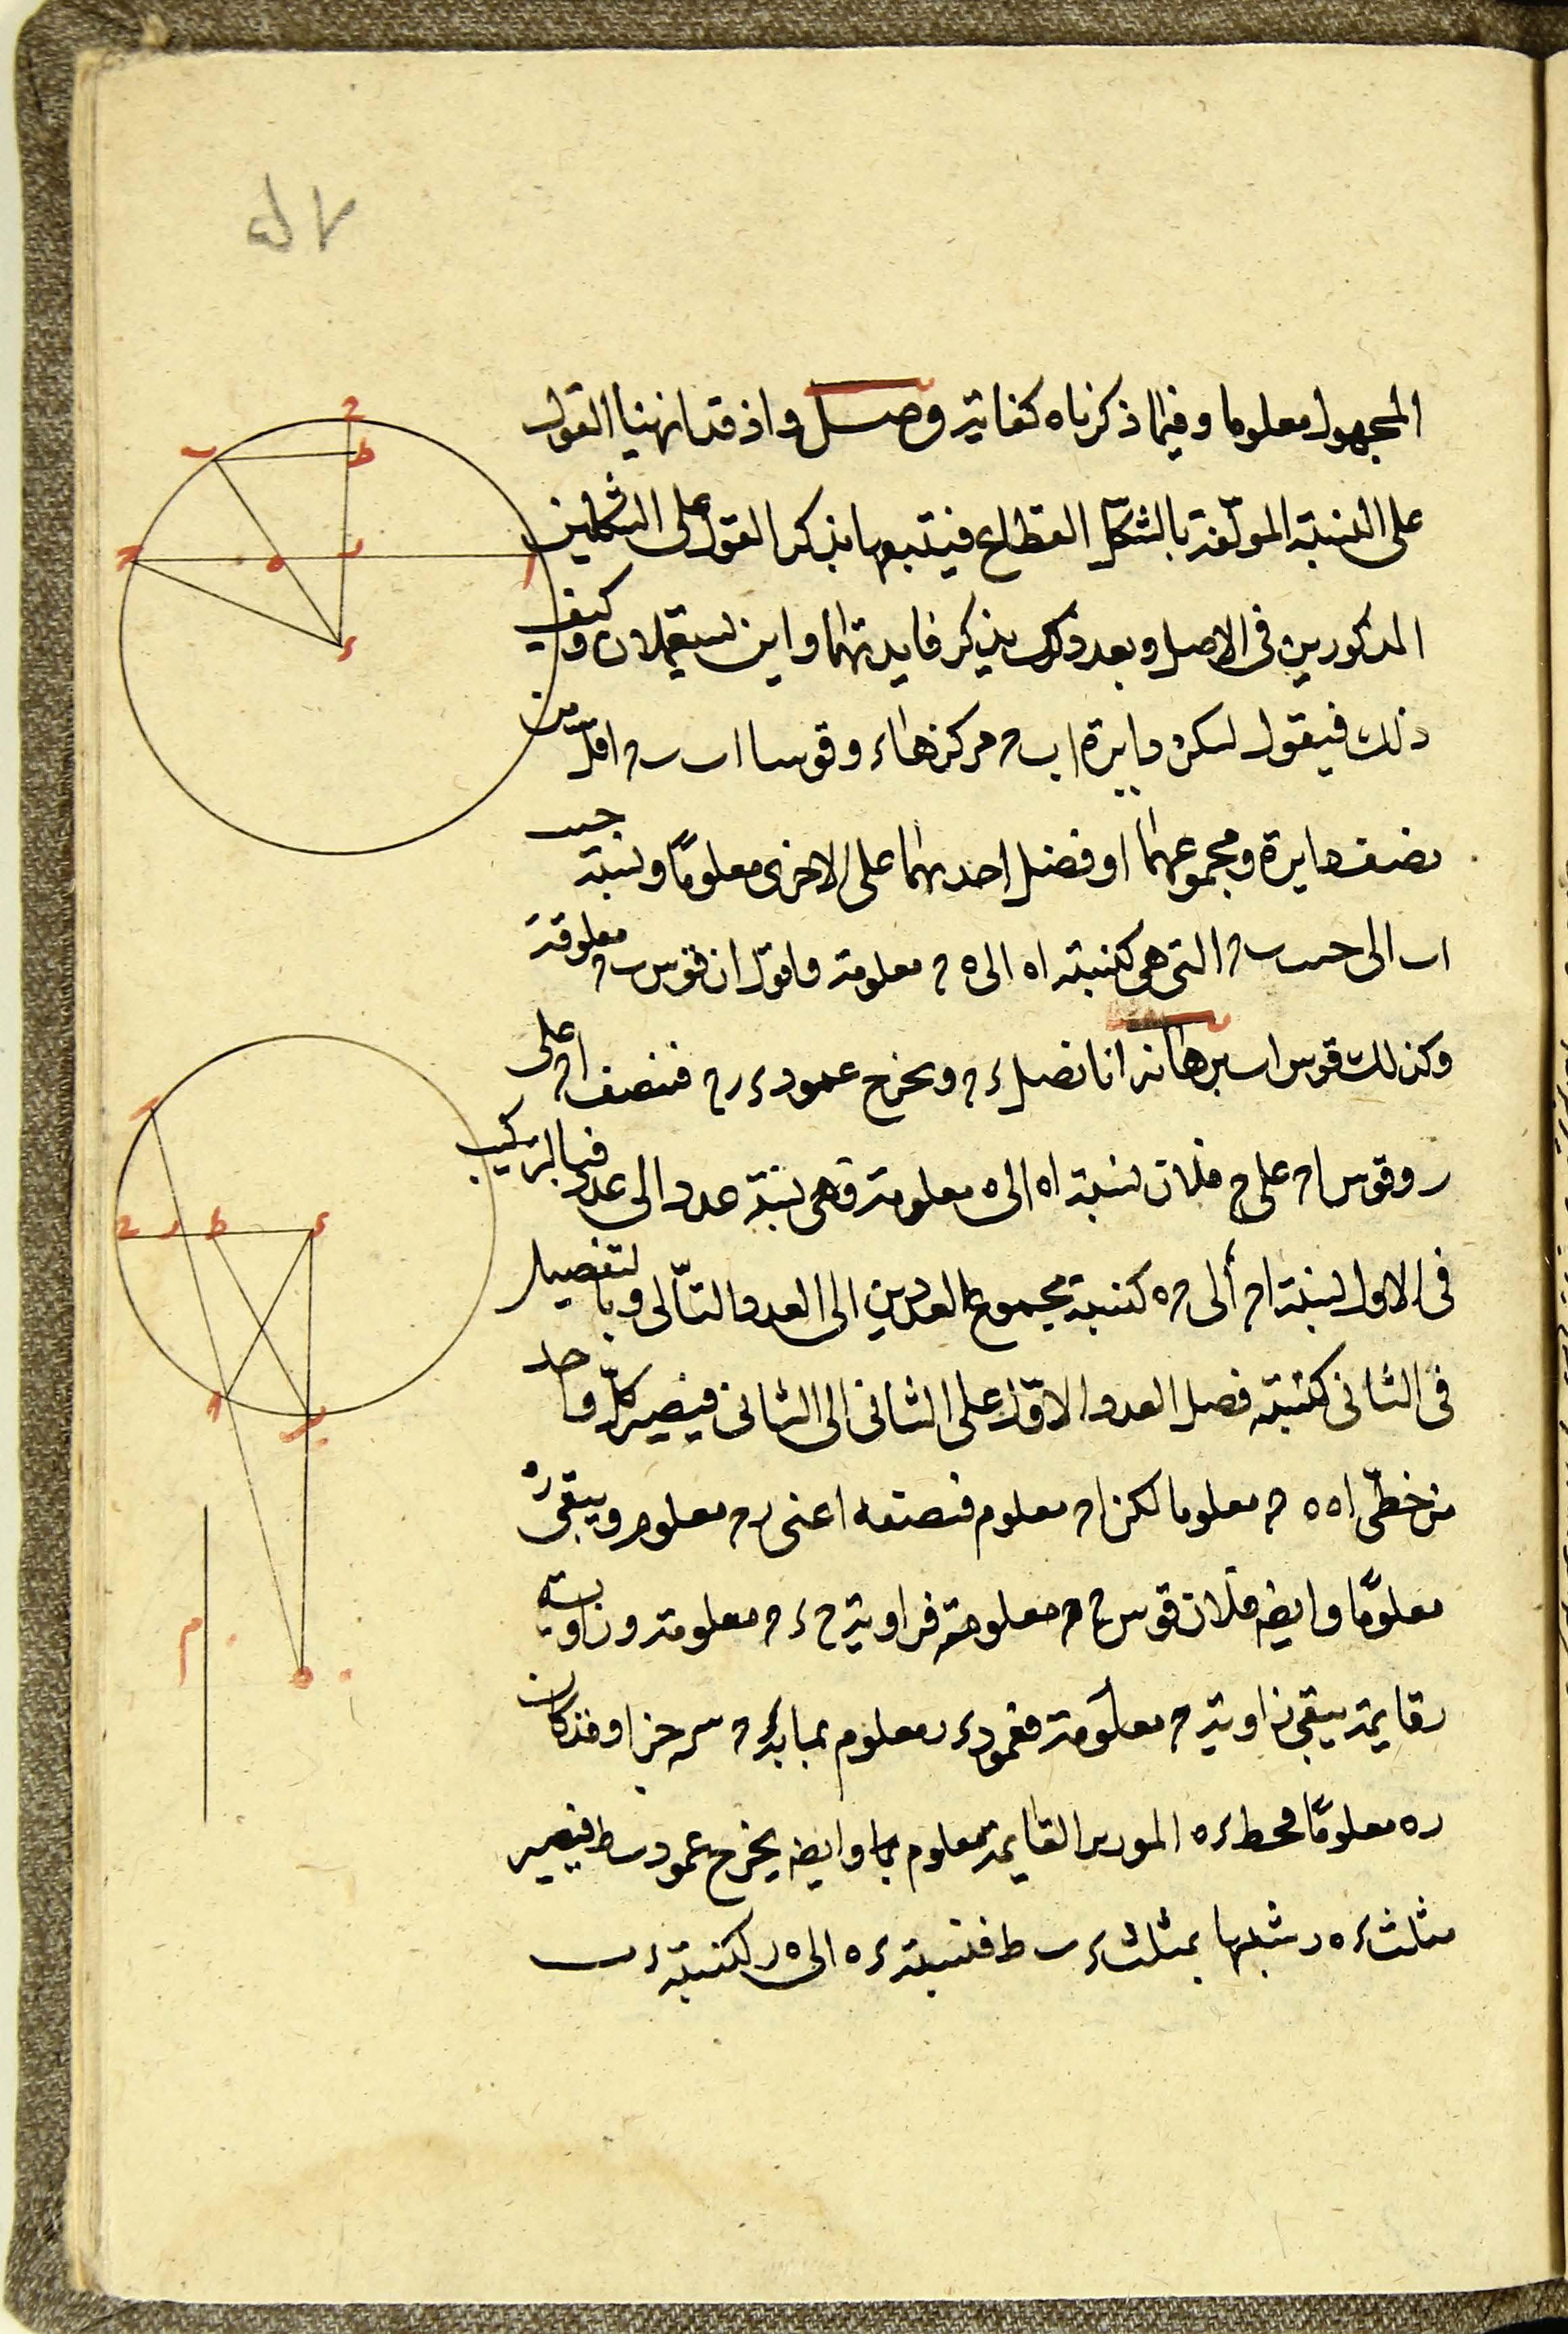 المجهول معلوما وفيما ذكرناه كفاية وصل واذ قد انهينا القول
على النسبة المولفة بالشكل القطاع فيتبعها بذكر القول على الشكلين
المذكورين في الاصل وبعد ذلك يذكر فايدتهما واين يستعملان وكيف
ذلك فيقول ليكن دايرة اب ح مركزها ء وقوسا اب ب ح اقل من
نصف دايرة ومجموعهما او فضل احدهما على الاخرى معلوما ونسبة جيب
اب الى جيب ب ح التي هي كنسبة اه الى ه ح معلومة فاقول ان قوس ب ح معلومة
وكذلك قوس اب برهانه انا نصل ء ح ونخرج عمود ء ر ح فنصف ا ح على
ر وقوس ا ح على ح فلان نسبة اه الى ه معلومة فهي نسبة عدد الى عدد فبالتركيب
في الاول نسبة ا ح الى ح ه كنسبة مجموع العددين الى العدد التالى وبالتفصيل
في الثاني كنسبة فصل العدد الاول على الثاني الى الثاني فيصير كل واحد
من خطى اه ه ح معلوما لكن ا ح معلوم فنصفه اعنى ر ح معلوم ويبقى ر ه
معلوما وايضا فلان قوس ح ح معلومة فزاوية ح ء ح معلومة وزاوية
ر قايمة يبقى زاوية ح معلومة فعمود ء ر معلوم بمابه ء ح س جزا وقد كان
ر ه معلوما فخط ء ه الموتر القايمة معلوم بها وايضا يخرج عمود ب ط فيصير
مثلث ء ه ر شبيها بمثلث ء ب ط فنسبة ء ه الى ه ر كنسبة ء ب